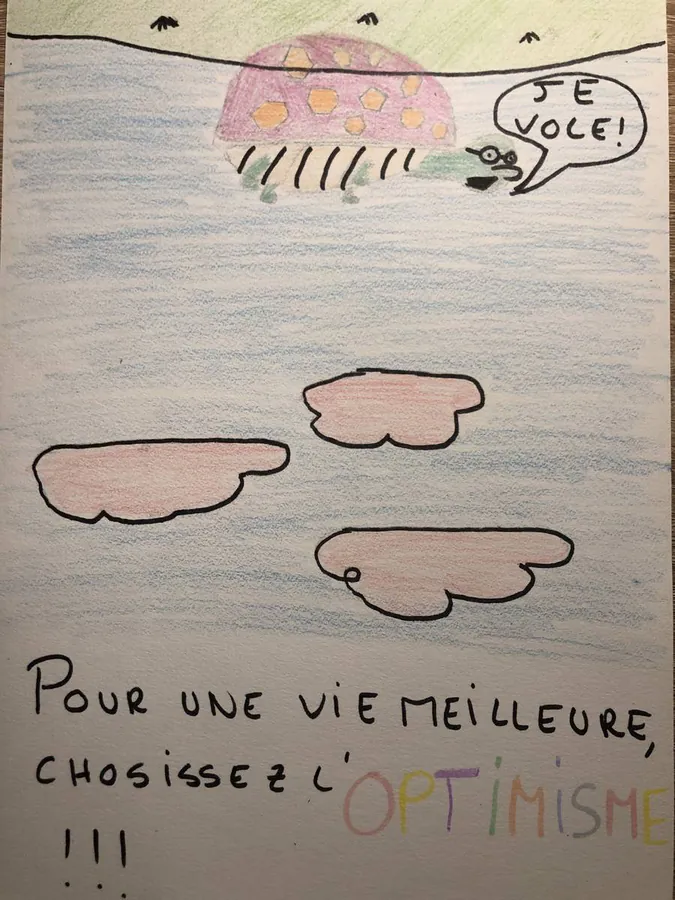 JE
VOLE!
POUR UNE ViE MEiLLEURE,
CHOSiSSEZ L'OPTiMiSME
!!!